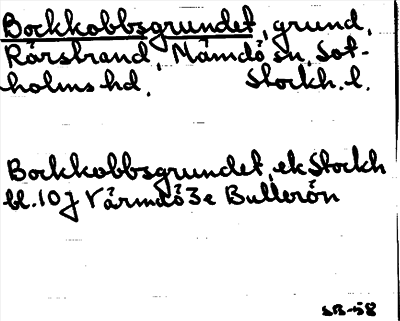 Bockkobbsgrundet, grund,
Rårstrand, Nämdö sn, Sot-
holms hd, Stockh. l.
Bockkobbsgrundet, ek Stockh
bl. 10 J Värmdö 3e Bullerön
SB-58